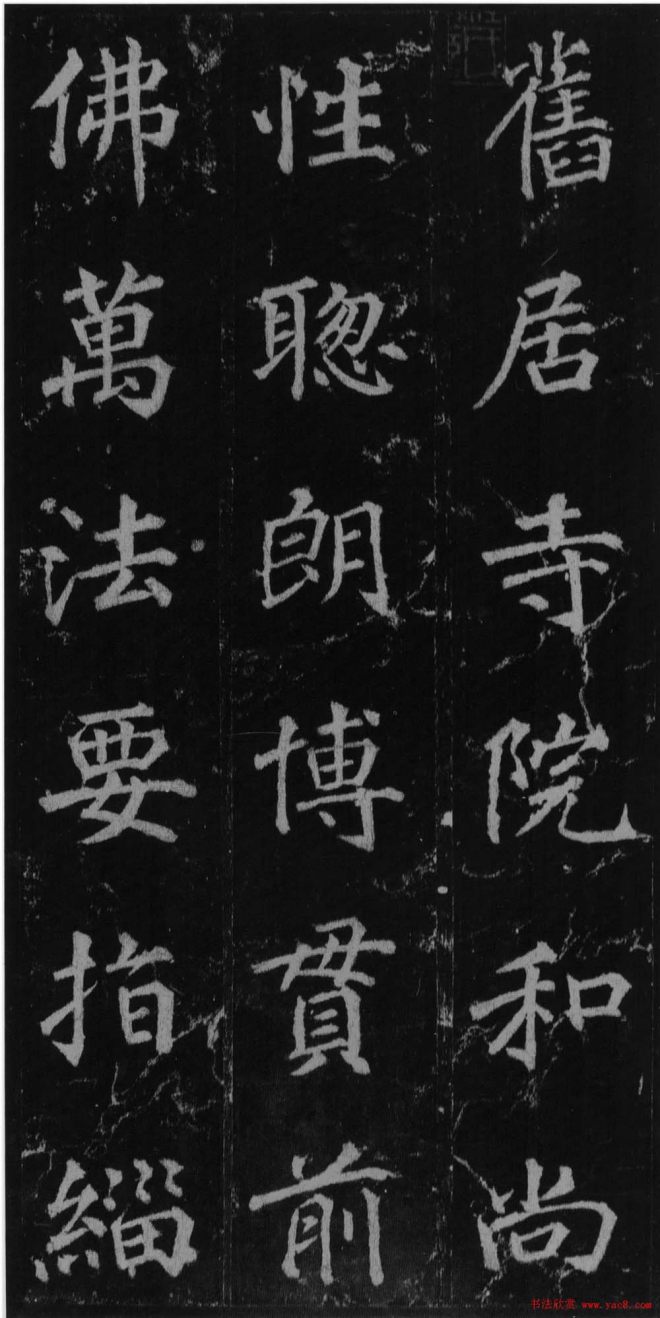 舊居寺院和尚
性聦朗博貫前
佛萬法要指緇
书法欣赏 www.yac8.com